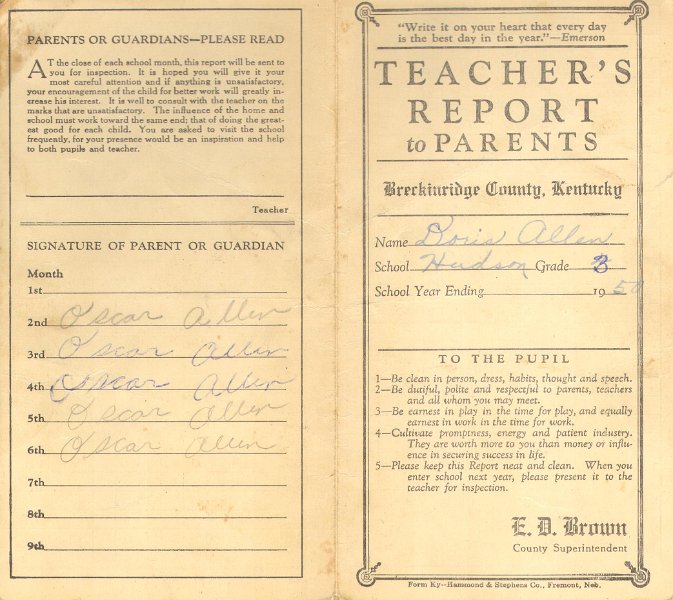 PARENTS OR GUARDIANS—PLEASE READ
AT the close of each school month, this report will be sent to
you for inspection. It is hoped you will give it your
most careful attention and if anything is unsatisfactory,
your encouragement of the child for better work will greatly in-
crease his interest. It is well to consult with the teacher on the
marks that are unsatisfactory. The influence of the home and
school must work toward the same end; that of doing the great-
est good for each child. You are asked to visit the school
frequently, for your presence would be an inspiration and help
to both pupils and teacher.
Teacher
SIGNATURE OF PARENT OR GUARDIAN
Month
1st
2nd Oscar Allen
3rd Oscar Allen
4th Oscar Allen
5th Oscar Allen
6th Oscar Allen
7th
8th
9th
"Write it on your heart that every day
is the best day in the year."—Emerson
TEACHER'S
REPORT
to PARENTS
Breckinridge County, Kentucky
Name Doris Allen
School Hudson Grade 3
School Year Ending 1950
TO THE PUPIL
1—Be clean in person, dress, habits, thought and speech.
2—Be dutiful, polite and respectful to parents, teachers
and all whom you may meet.
3—Be earnest in play in the time for play, and equally
earnest in work in the time for work.
4—Cultivate promptness, energy and patient industry.
They are worth more to you than money or influ-
ence in securing success in life.
5—Please keep this Report neat and clean. When you
enter school next year, please present it to the
teacher for inspection.
E. D. Brown
County Superintendent
Form Ky—Hammond & Stephens Co., Fremont, Neb.